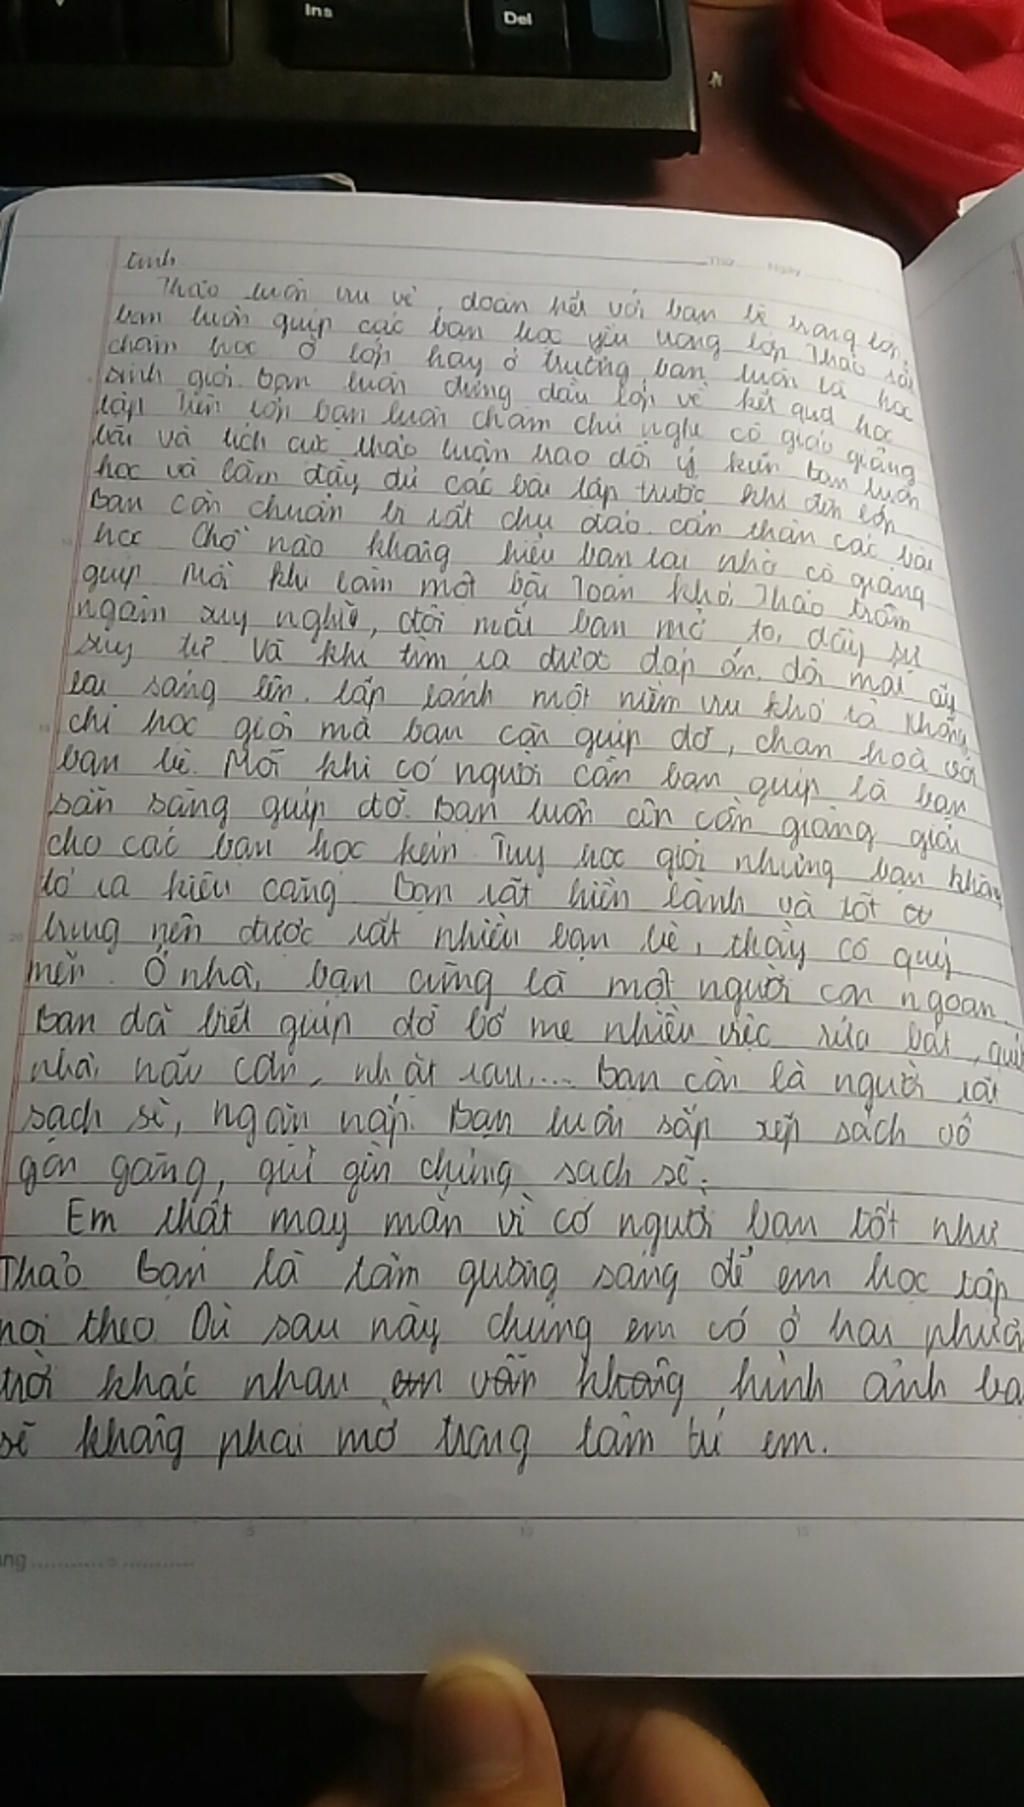 Ins
Del
Thứ Ngày
tình
Thảo luôn vui vẻ, đoàn kết với bạn bè trong lớp,
bạn luôn giúp các bạn học yếu trong lớp Thảo rất
chăm học ở lớp hay ở trường bạn luôn là học
sinh giỏi. bạn luôn đứng đầu lớp về kết quả học
tập trên lớp bạn luôn chăm chú nghe cô giáo giảng
bài và tích cực thảo luận trao đổi ý kiến bạn luôn
học và làm đầy đủ các bài tập trước khi đến lớp
bạn còn chuẩn bị rất chu đáo. cẩn thận các bài
học Chỗ nào không hiểu bạn lại nhờ cô giảng
giúp Mỗi khi làm một bài Toán khó, Thảo trầm
ngâm suy nghĩ, đôi mắt bạn mở to, đầy sự
suy tư và khi tìm ra được đáp án. đôi mắt ấy
lại sáng lên. lấp lánh một niềm vui khó tả không
chỉ học giỏi mà bạn còn giúp đỡ, chan hoà với
bạn bè. Mỗi khi có người cần bạn giúp là bạn
sẵn sàng giúp đỡ. bạn luôn ân cần giảng giải
cho các bạn học kém Tuy học giỏi nhưng bạn không
tỏ ra kiêu căng bạn rất hiền lành và tốt
bụng nên được rất nhiều bạn bè, thầy cô quý
mến. Ở nhà, bạn cũng là một người con ngoan.
bạn đã biết giúp đỡ bố mẹ nhiều việc rửa bát,
nhà, nấu cơm, nhặt rau,... bạn còn là người rất
sạch sẽ, ngăn nắp. bạn luôn sắp xếp sách vở
gọn gàng, giữ gìn chúng sạch sẽ.
Em thật may mắn vì có người bạn tốt như
Thảo bạn là tấm gương sáng để em học tập
noi theo Dù sau này chúng em có ở hai
trời khác nhau em vẫn không hình ảnh
sẽ không phai mờ trong tâm trí em.
5 10 15